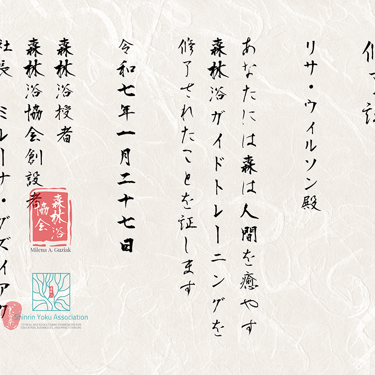 修了証
リサ・ウィルソン殿
あなたには森は人間を癒やす
森林浴ガイドトレーニングを
修了されたことを証します
令和七年一月二十七日
森林浴授者
森林浴協会創設者
社長 ミレーナ・グズィアク
森林浴
協会
Milena A. Guziak
Shinrin Yoku Association